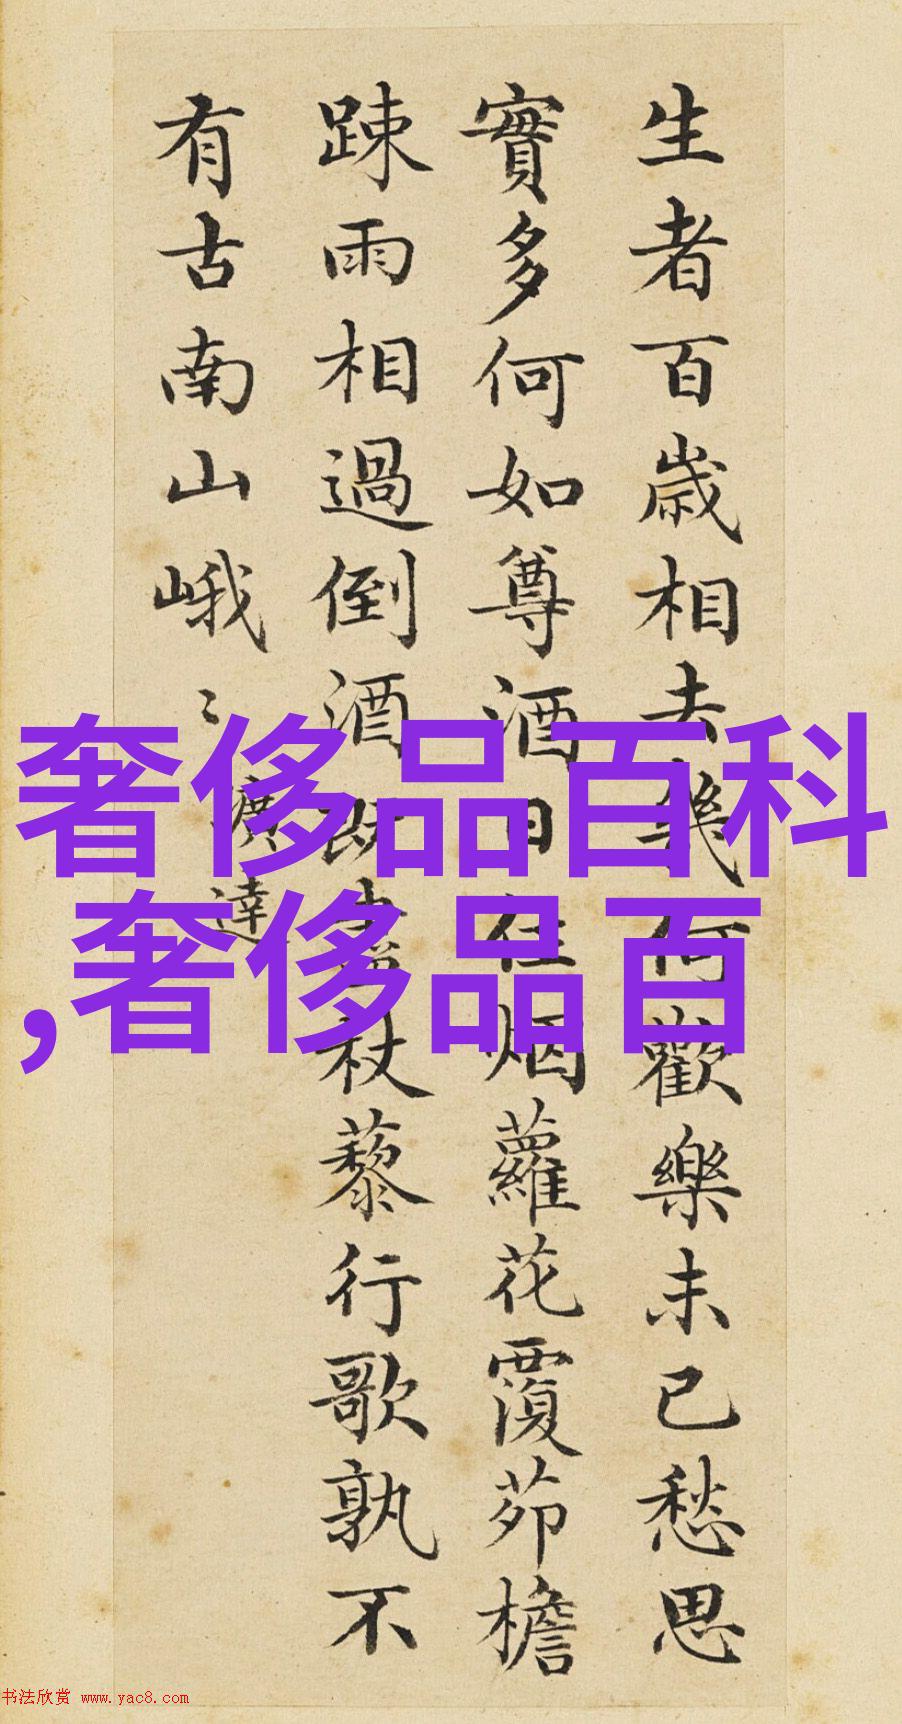 生者百歲相去幾何歡樂未已愁思
實多何如尊酒日往烟蘿花覆茆檐
踈雨相過倒酒既盡杖藜行歌孰不
有古南山峨〻
曠達
奢侈品百科
,奢侈品百
书法欣赏 www.yac8.com